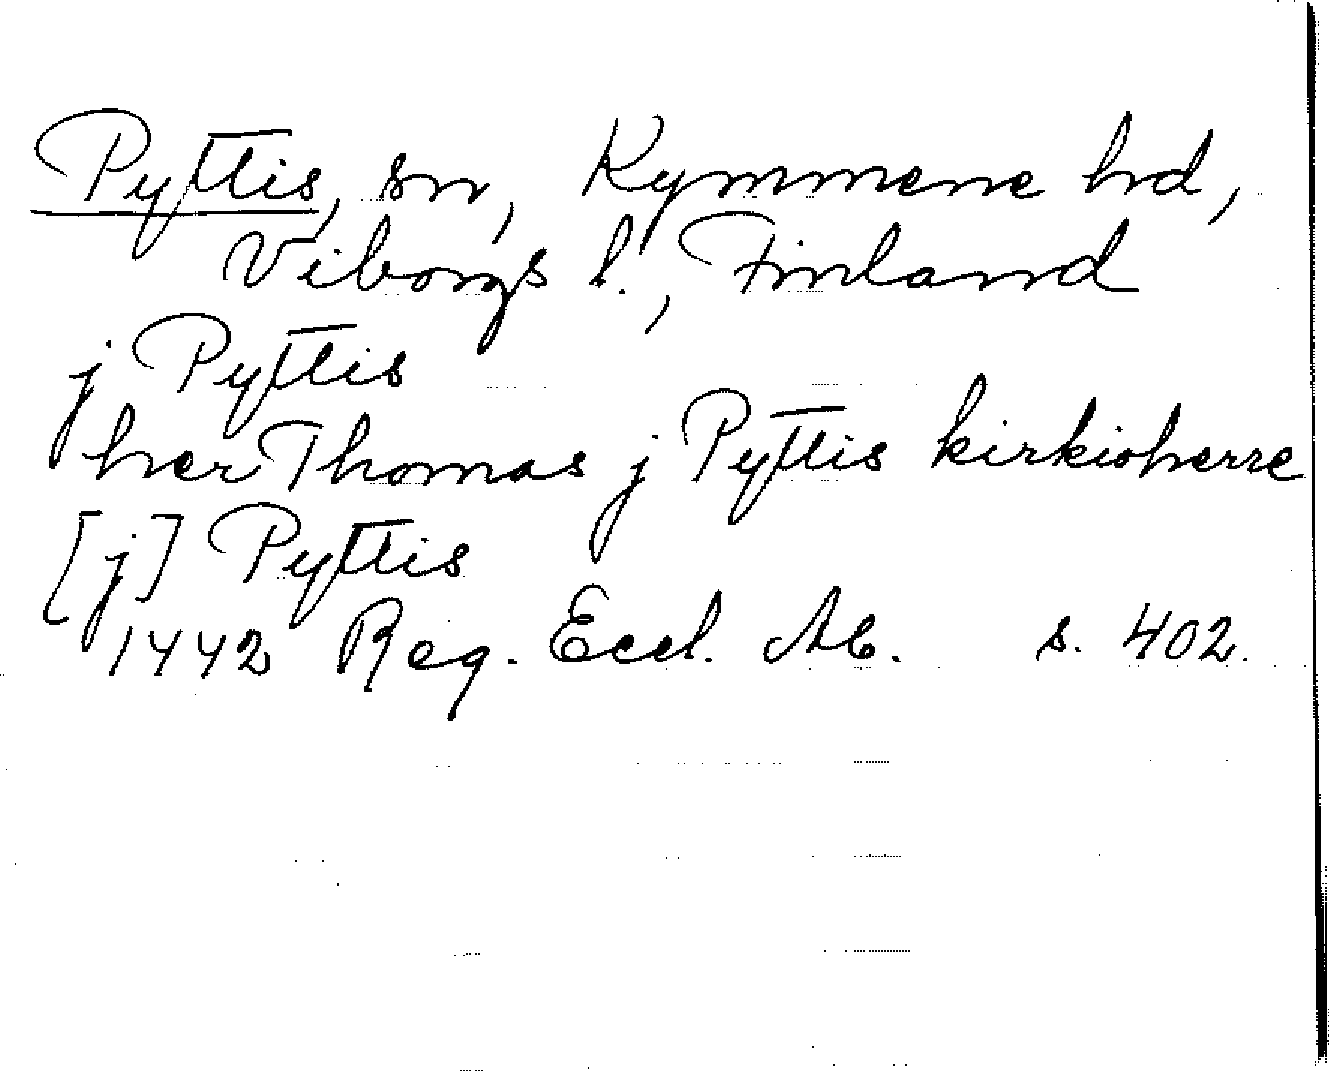 Pyttis, sn, Kymmene hd,
Viborgs l., Finland
j Pyttis
her Thomas j Pyttis kirkioherre
[j] Pyttis
1442 Reg. Eccl. Ab. s. 402.